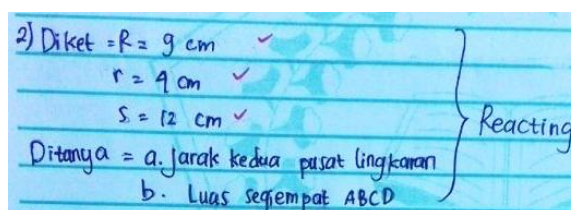 2) Diket = R = 9 cm
r = 4 cm
S = 12 cm
Ditanya = a. Jarak kedua pusat lingkaran
b. Luas segiempat ABCD
Reacting